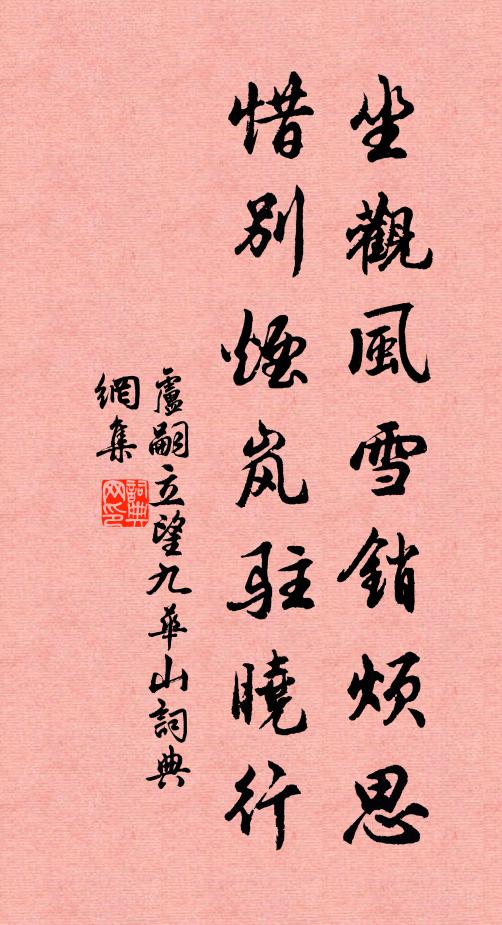 坐觀風雪銷煩思
惜別煙岚駐曉行
盧嗣立望九華山詞典
網集
詞典网印